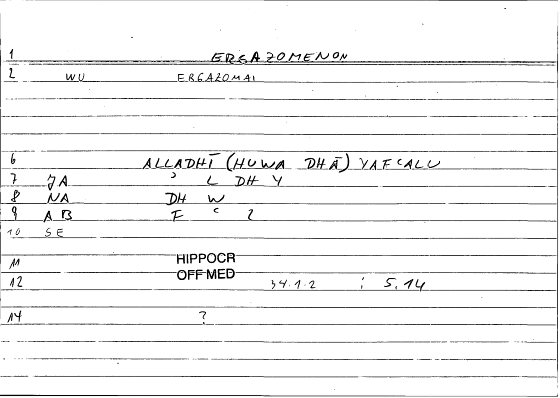 1 ERGAZOMENON
2 WU ERGAZOMAI
6 ALLADHĪ (HUWA DHĀ) YAFCALU
7 JA ʾ L DH Y
8 NA DH W
9 AB F C 2
10 SE
11 HIPPOCR
OFF MED
12 34.1.2 : 5.14
14 ?